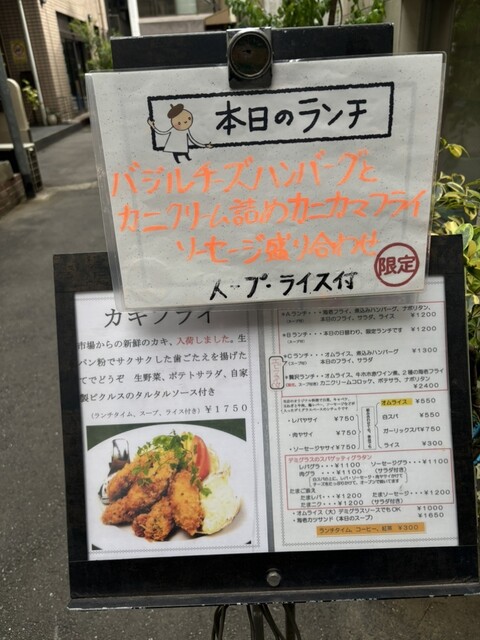 本日のランチ
バジルチーズハンバーグと
カニクリーム詰めカニカマフライ
ソーセージ盛り合わせ
限定
スープ・ライス付
カキフライ
市場からの新鮮のカキ、入荷しました。生
パン粉でサクサクした歯ごたえを揚げた
てでどうぞ 生野菜、ポテトサラダ、自家
製ピクルスのタルタルソース付き
(ランチタイム、スープ、ライス付き) ¥1750
*Aランチ・・・海老フライ、煮込みハンバーグ、ナポリタン、
(スープ付) 本日のフライ、サラダ、ライス ¥1200
*Bランチ・・・本日の日替わり、限定ランチです ¥1200
(スープ付)
*Cランチ・・・オムライス、煮込みハンバーグ ¥1300
(スープ付) 本日のフライ、サラダ
*贅沢ランチ・・オムライス、牛ホホ赤ワイン煮、2種の海老フライ
カニクリームコロッケ、ポテサラ、ナポリタン
¥2400
オムライス ¥550
・レバヤサイ ¥750
白スパ ¥550
・肉ヤサイ ¥750
ガーリックスパ¥750
・ソーセージヤサイ¥750
ライス ¥300
デミグラスのスパゲッティグラタン
レバグラ・・¥1100 ソーセージグラ・・¥1100
肉グラ ・・¥1100 (サラダ付き)
たまご添え
たまレバ・・¥1200 たまソーセージ・・¥1200
たまニク・・¥1200 (サラダ付き)
・オムライス(大)デミグラスソースでもOK ¥1000
・海老カツサンド(本日のスープ) ¥1650
ランチタイム、コーヒー、紅茶 ¥300